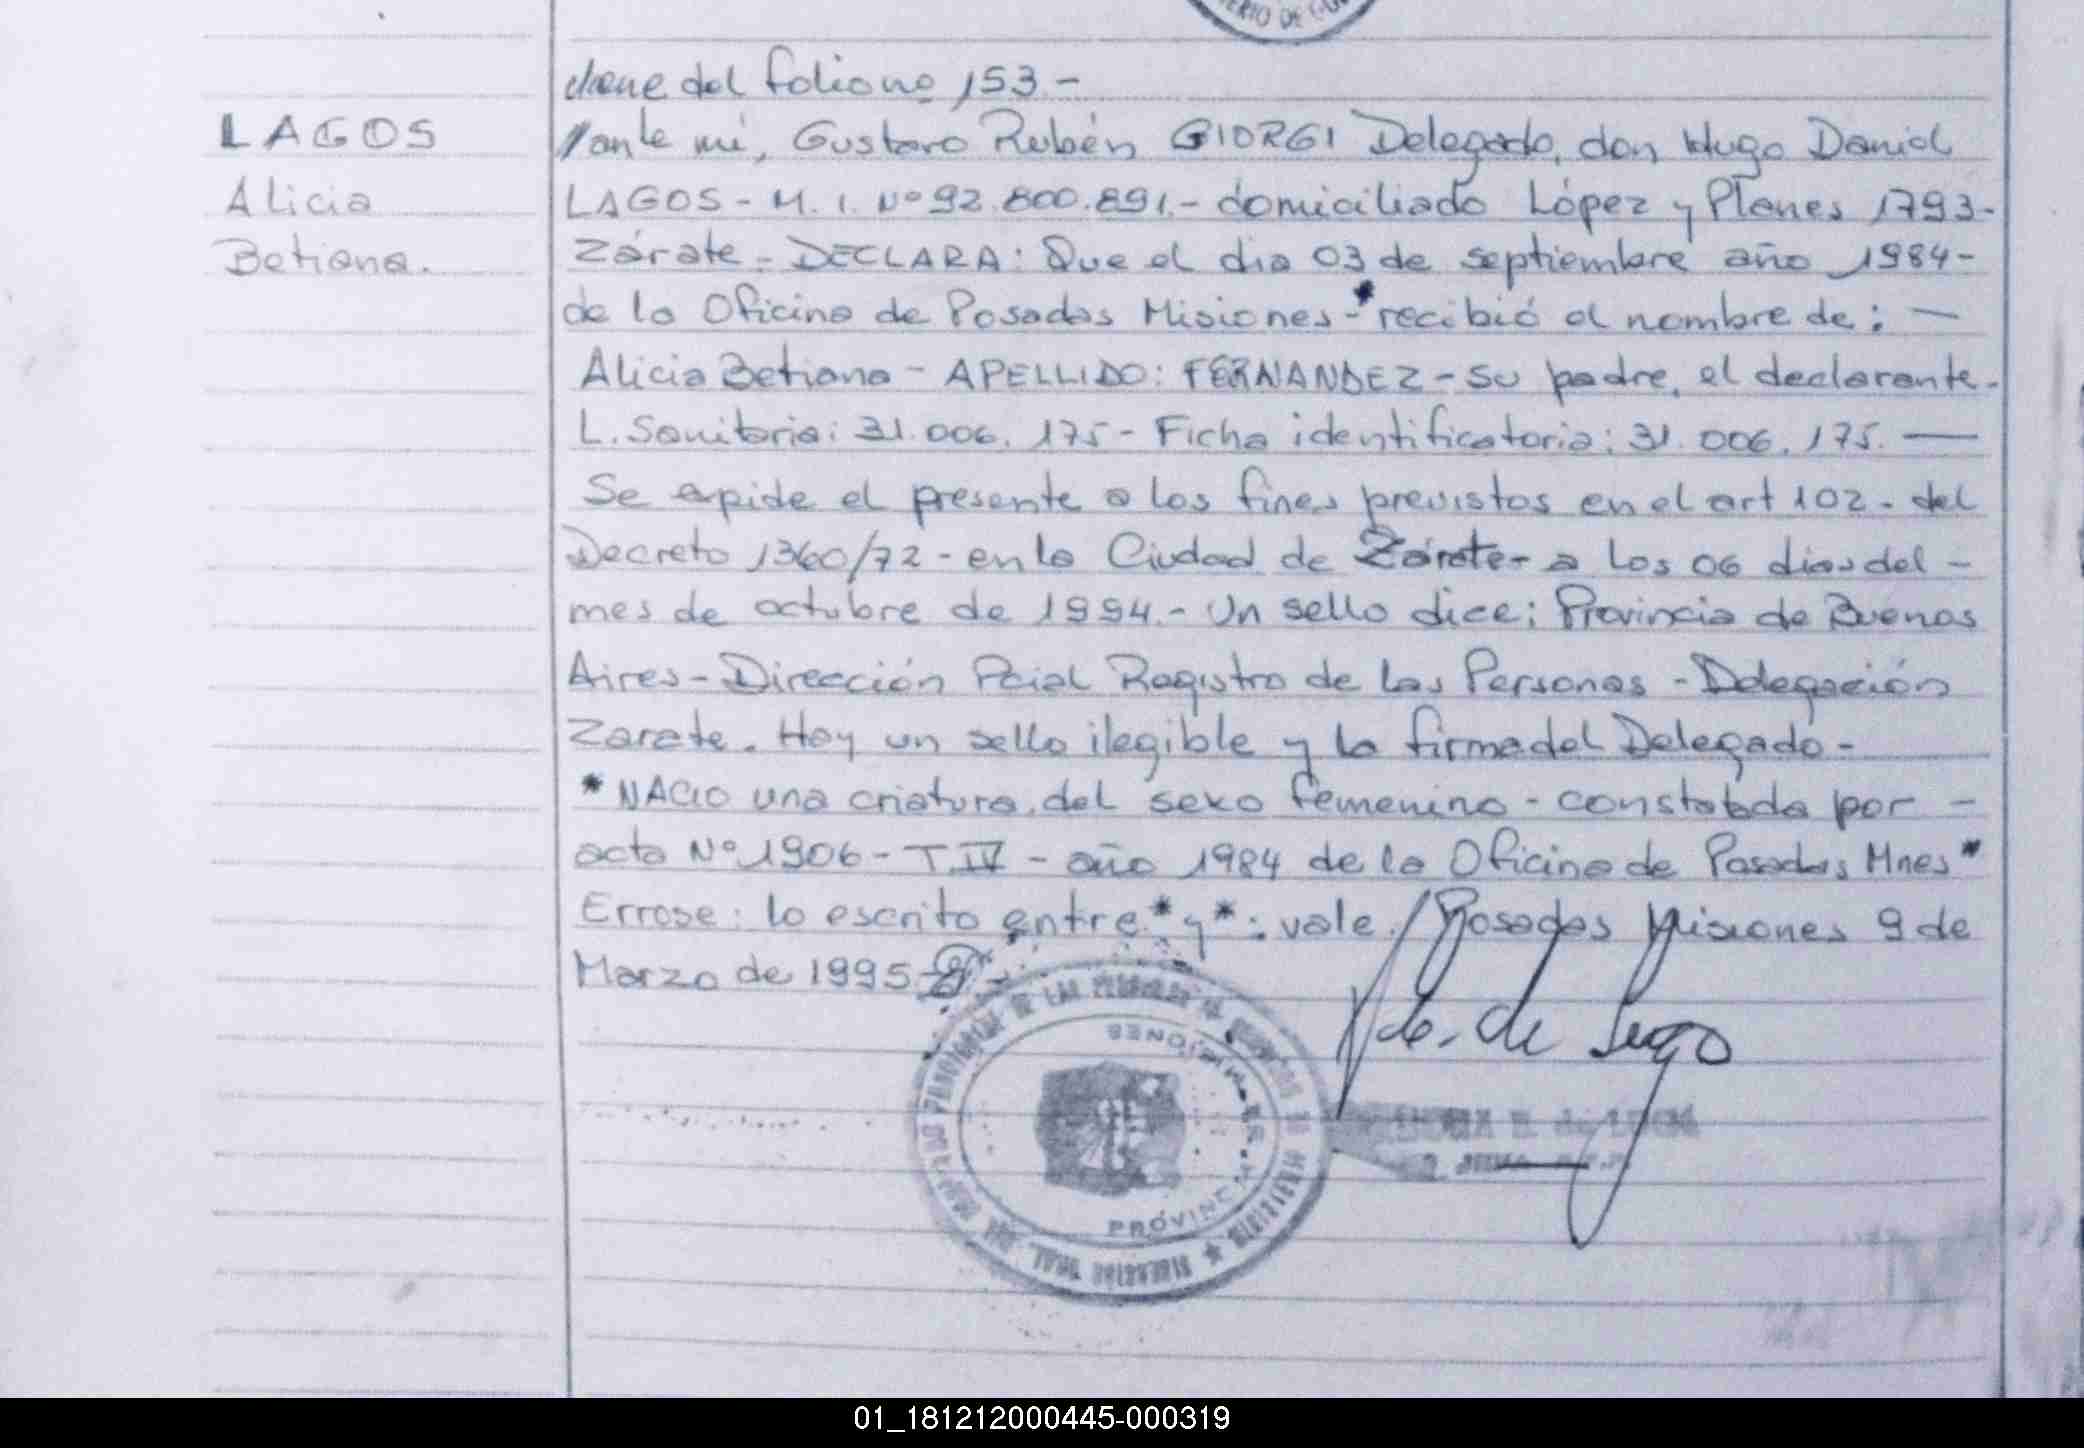 ERIO DE GOB
viene del folio no 153 -
LAGOS
Alicia
Betiana.
/ante mi, Gustavo Rubén GIORGI Delegado, don Hugo Daniel
LAGOS - M. I. Nº 92.800.891.- domiciliado López y Planes 1793-
Zárate - DECLARA: Que el dia 03 de septiembre año 1984-
de la Oficina de Posadas Misiones -* recibió el nombre de: —
Alicia Betiana - APELLIDO: FERNANDEZ - Su padre, el declarante-
L. Sanitaria: 31.006.175 - Ficha identificatoria: 31.006.175. —
Se expide el presente a los fines previstos en el art 102 - del
Decreto 1360/72 - en la Ciudad de Zárate - a los 06 dias del -
mes de octubre de 1994.- Un sello dice: Provincia de Buenos
Aires - Dirección Pcial Registro de las Personas - Delegación
Zarate. Hay un sello ilegible y la firma del Delegado -
*NACIO una criatura del sexo femenino - constatada por -
acta Nº 1906 - T. IV - año 1984 de la Oficina de Posadas Mnes*
Errose: lo escrito entre * y *: vale./Posadas Misiones 9 de
Marzo de 1995
PROVINCIA
MISIONES
01_181212000445-000319